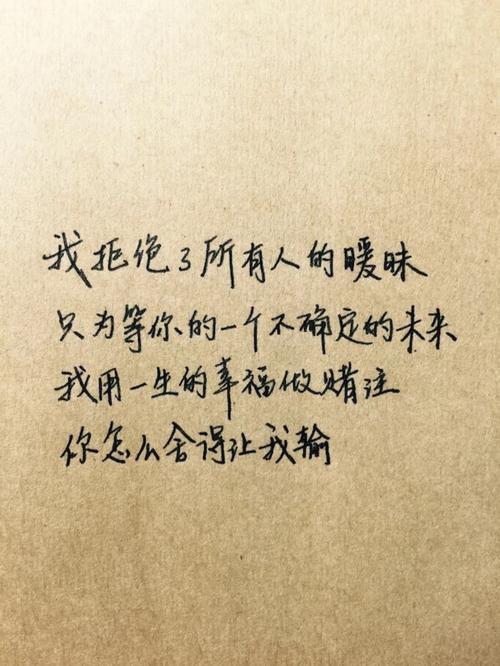 我拒绝了所有人的暧昧
只为等你的一个不确定的未来
我用一生的幸福做赌注
你怎么舍得让我输